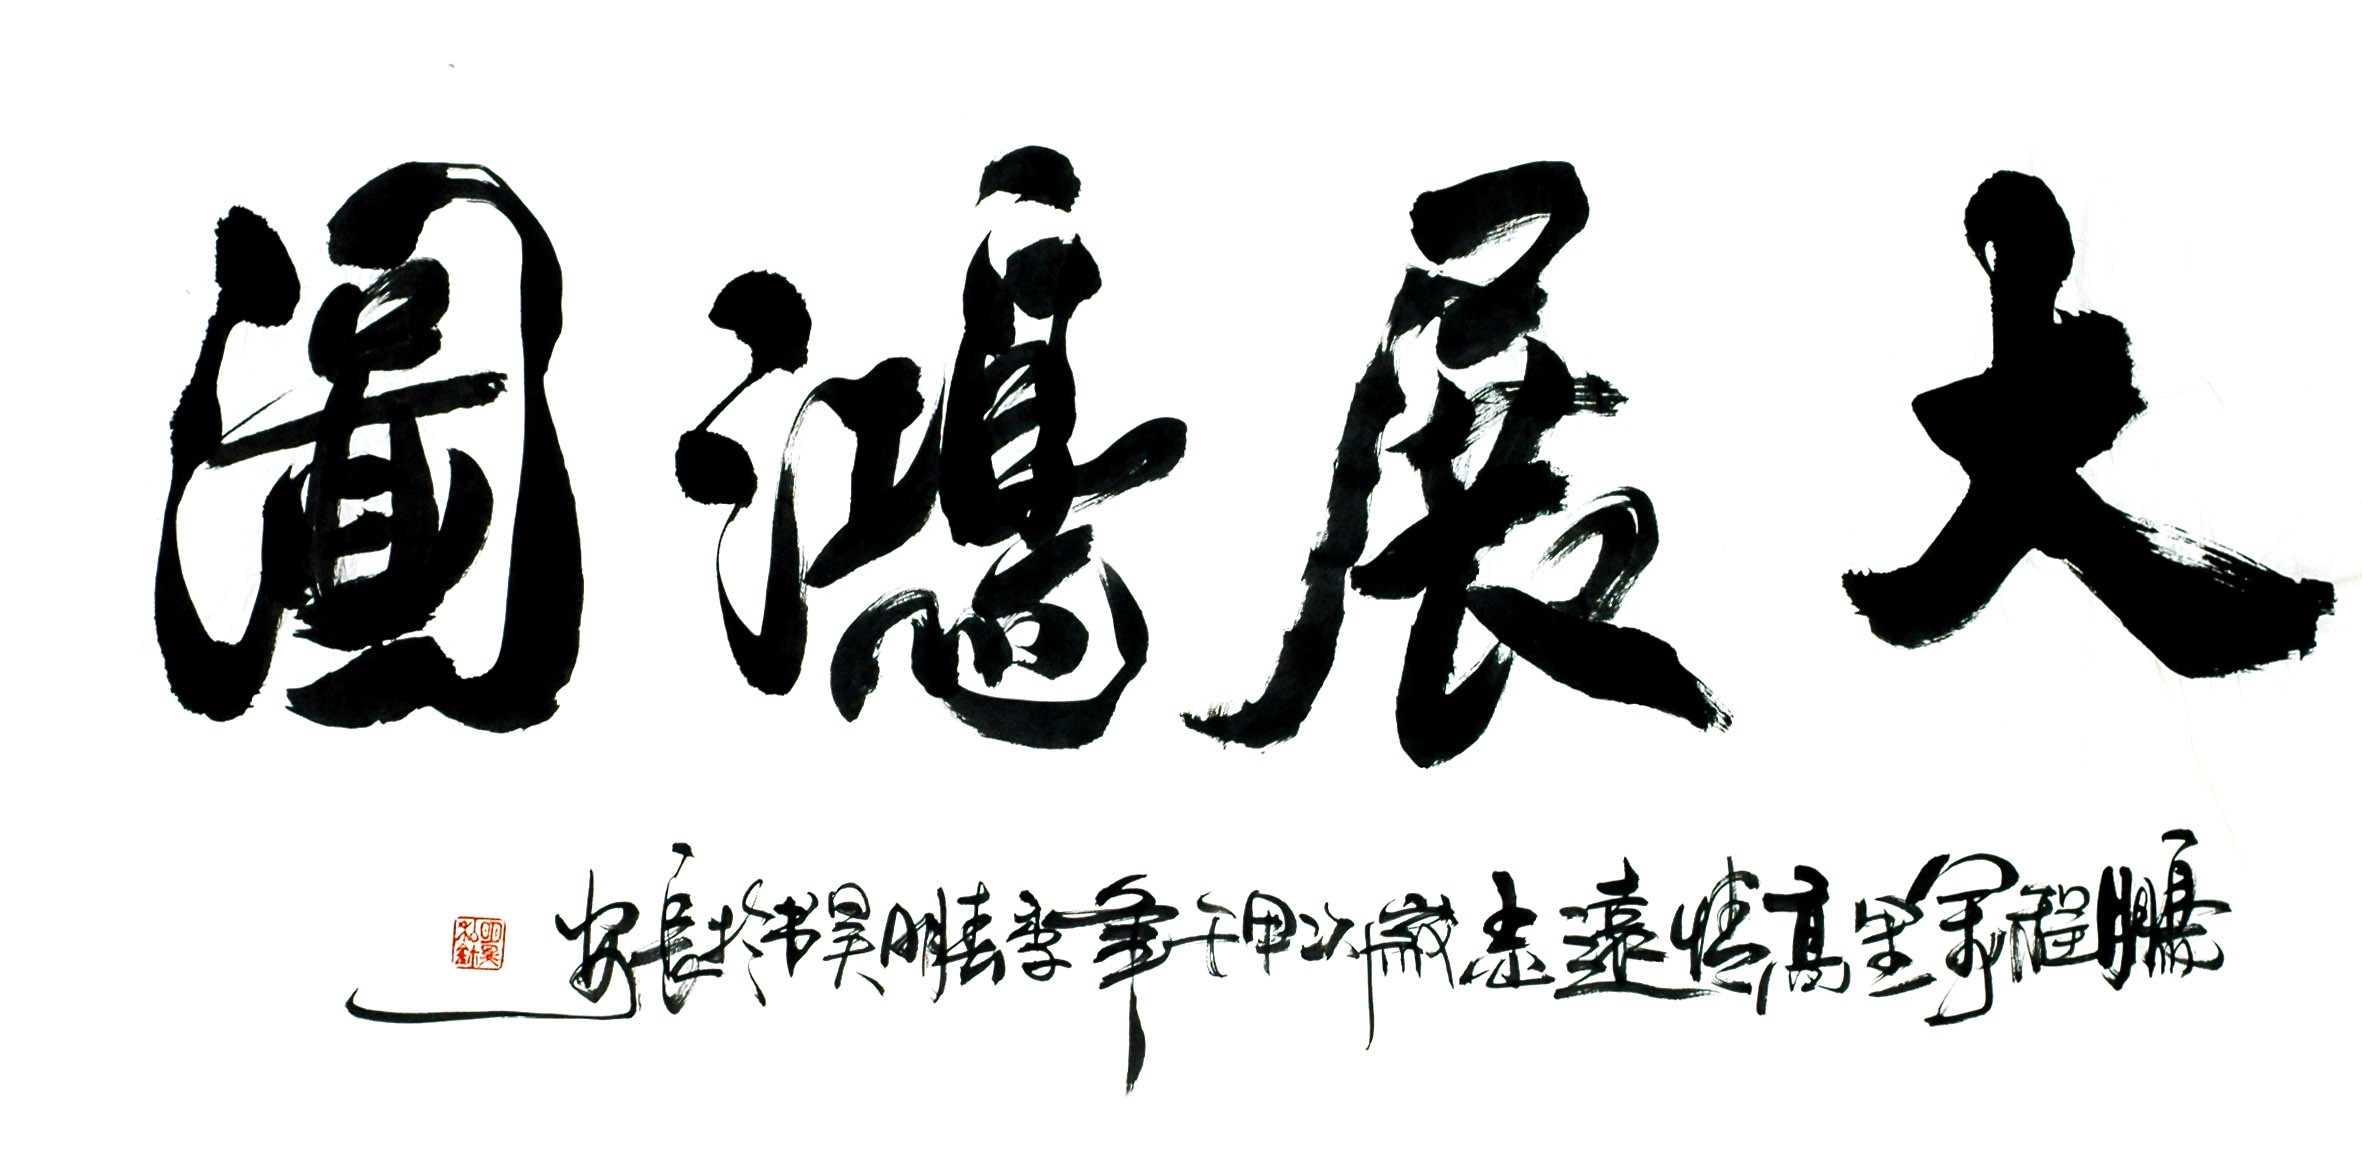 大展鴻圖
鵬程萬里高情遠志歲次甲午年季春明昊书於長安
明昊